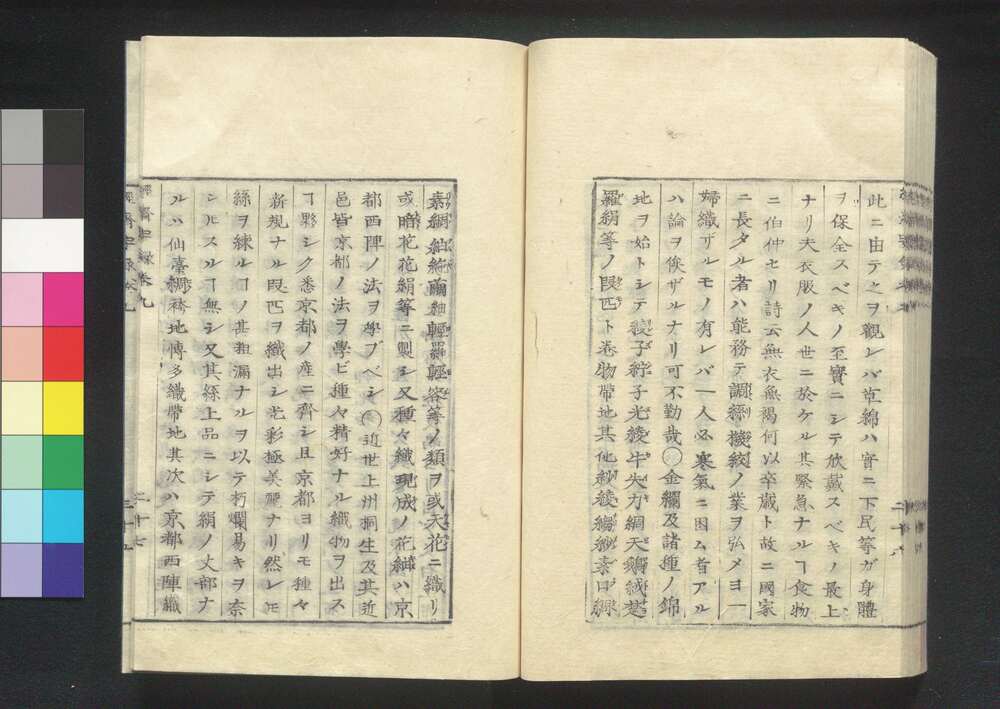 此ニ由テ之ヲ觀レバ草綿ハ實ニ下民等ガ身體
ヲ保全スベキノ至寶ニシテ欣戴スベキノ最上
ナリ夫衣服ノ人世ニ於ケル其緊急ナルヿ食物
ニ伯仲セリ詩云無衣無褐何以卒歳ト故ニ國家
ニ長タル者ハ能務テ調絲機絞ノ業ヲ弘メヨ一
婦織ザルモノ有レバ一人必寒氣ニ困ム者アル
ハ論ヲ俟ザルナリ可不勤哉○金襴及諸種ノ錦
地ヲ始トシテ緞子綸子光綾天鵝絨
羅絹等ノ段匹ト卷物帶地其他
素綢紬絁繭紬輕羅等ノ類ヲ或天花ニ織リ
或暗花花絹等ニ製シ又種々織現成ノ花紬ハ京
都西陣ノ法ヲ學ブベシ○近世上州桐生及其近
邑皆京都ノ法ヲ學ビ種々精好ナル織物ヲ出ス
ヿ夥シク悉京都ノ産ニ齊シ且京都ヨリモ種々
新規ナル段匹ヲ織出シ光彩極美麗ナリ然レ𪜈
絲ヲ練ルヿノ甚粗漏ナルヲ以テ朽爛易キヲ奈
シトモスルヿ無シ又其絲上品ニシテ絹ノ丈部ナ
ルハ仙臺綢袴地博多織帶地其次ハ京都西陣織
經濟要録卷九
二十七